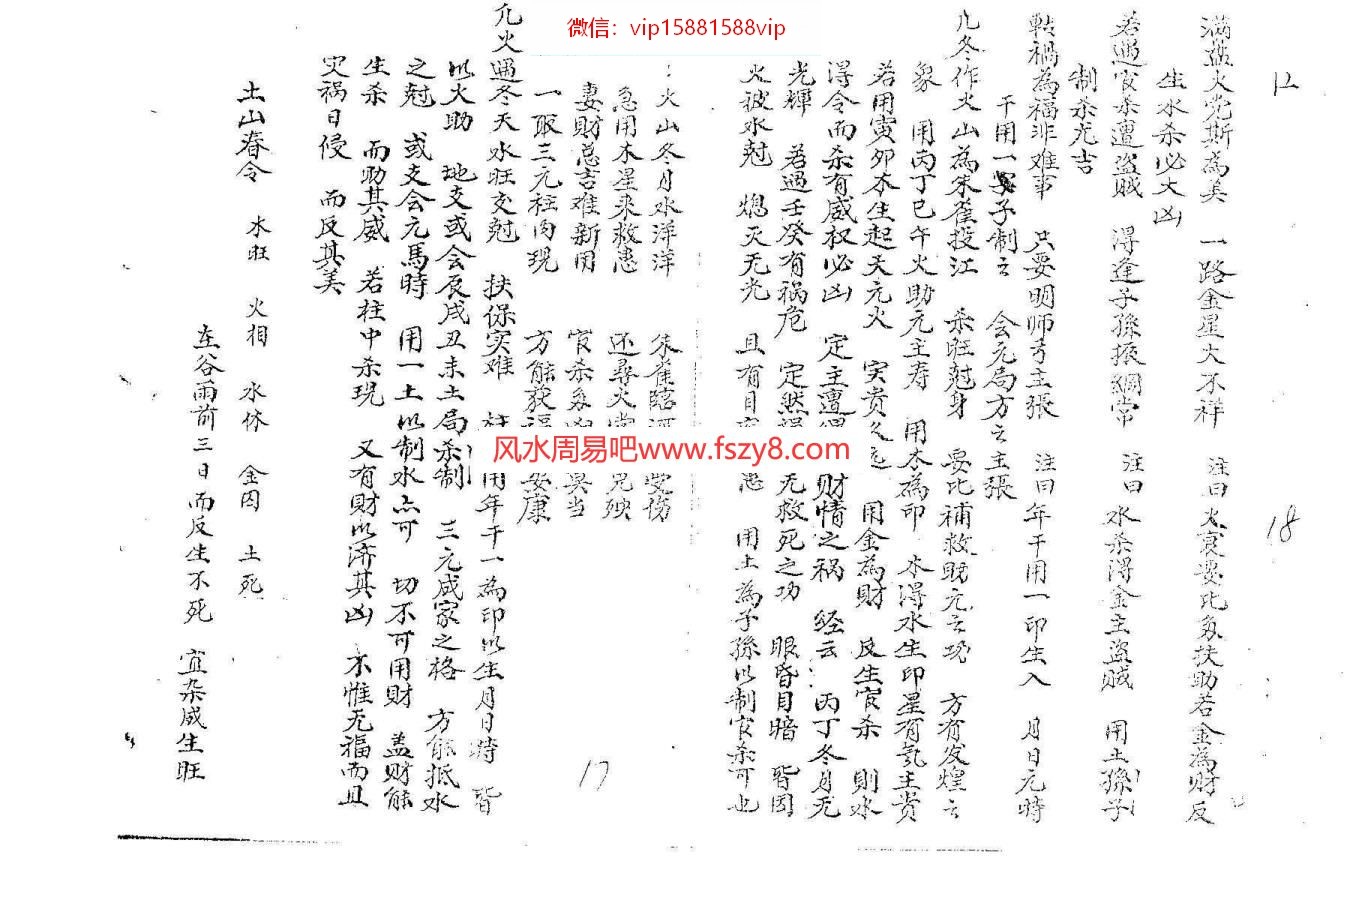 微信：vip15881588vip
12
满盘火党斯為美 一路金星大不祥 註曰火衰要比多扶助若金為财反
生水杀必大凶
若遇官杀遭盗贼 得逢子孫振綱常 註曰 水杀得金主盗贼 用土孫子
制杀尤吉
転禍為福非难事 只要明师方主張 註曰年干用一印生入 月日元時
干用一子制之 会元局方之主張
凢冬作火山為朱雀投江 杀旺尅身 要比補救助元之功 方有发煌之
象 用丙丁巳午火助元主寿 用木為印 木得水生印星有氣主贵
若用寅卯木生起天元火 实贵久远 用金為財 反生官杀 則水
得令而杀有威权必凶 定主遭 财情之祸 经云：丙丁冬月无
光輝 若遇壬癸有祸危 定然 无救死之功 眼昏目暗 皆因
火被水尅 熄灭无光 且有目 用土為子孫以制官杀可也
18
：火山冬月水洋洋 朱雀臨 受傷
急用木星来救患 还尋火 兄殃
妻財总吉难新用 官杀多凶 其当
一取三元柱内現 方能获福 安康
凢火遇冬天水旺交尅 扶保实难 柱 用年干一為印以生月日時 皆
以火助 地支或会辰戌丑未土局杀制 三元成家之格 方能抵水
之尅 或支会元馬時 用一土以制水点可 切不可用財 盖财能
生杀 而助其威 若柱中杀現 又有財以济其凶 不惟无福而且
灾祸日侵 而反其美
土山春令 木旺 火相 水休 金囚 土死
在谷雨前三日而反生不死 宜杂咸生旺
17
风水周易吧www.fszy8.com